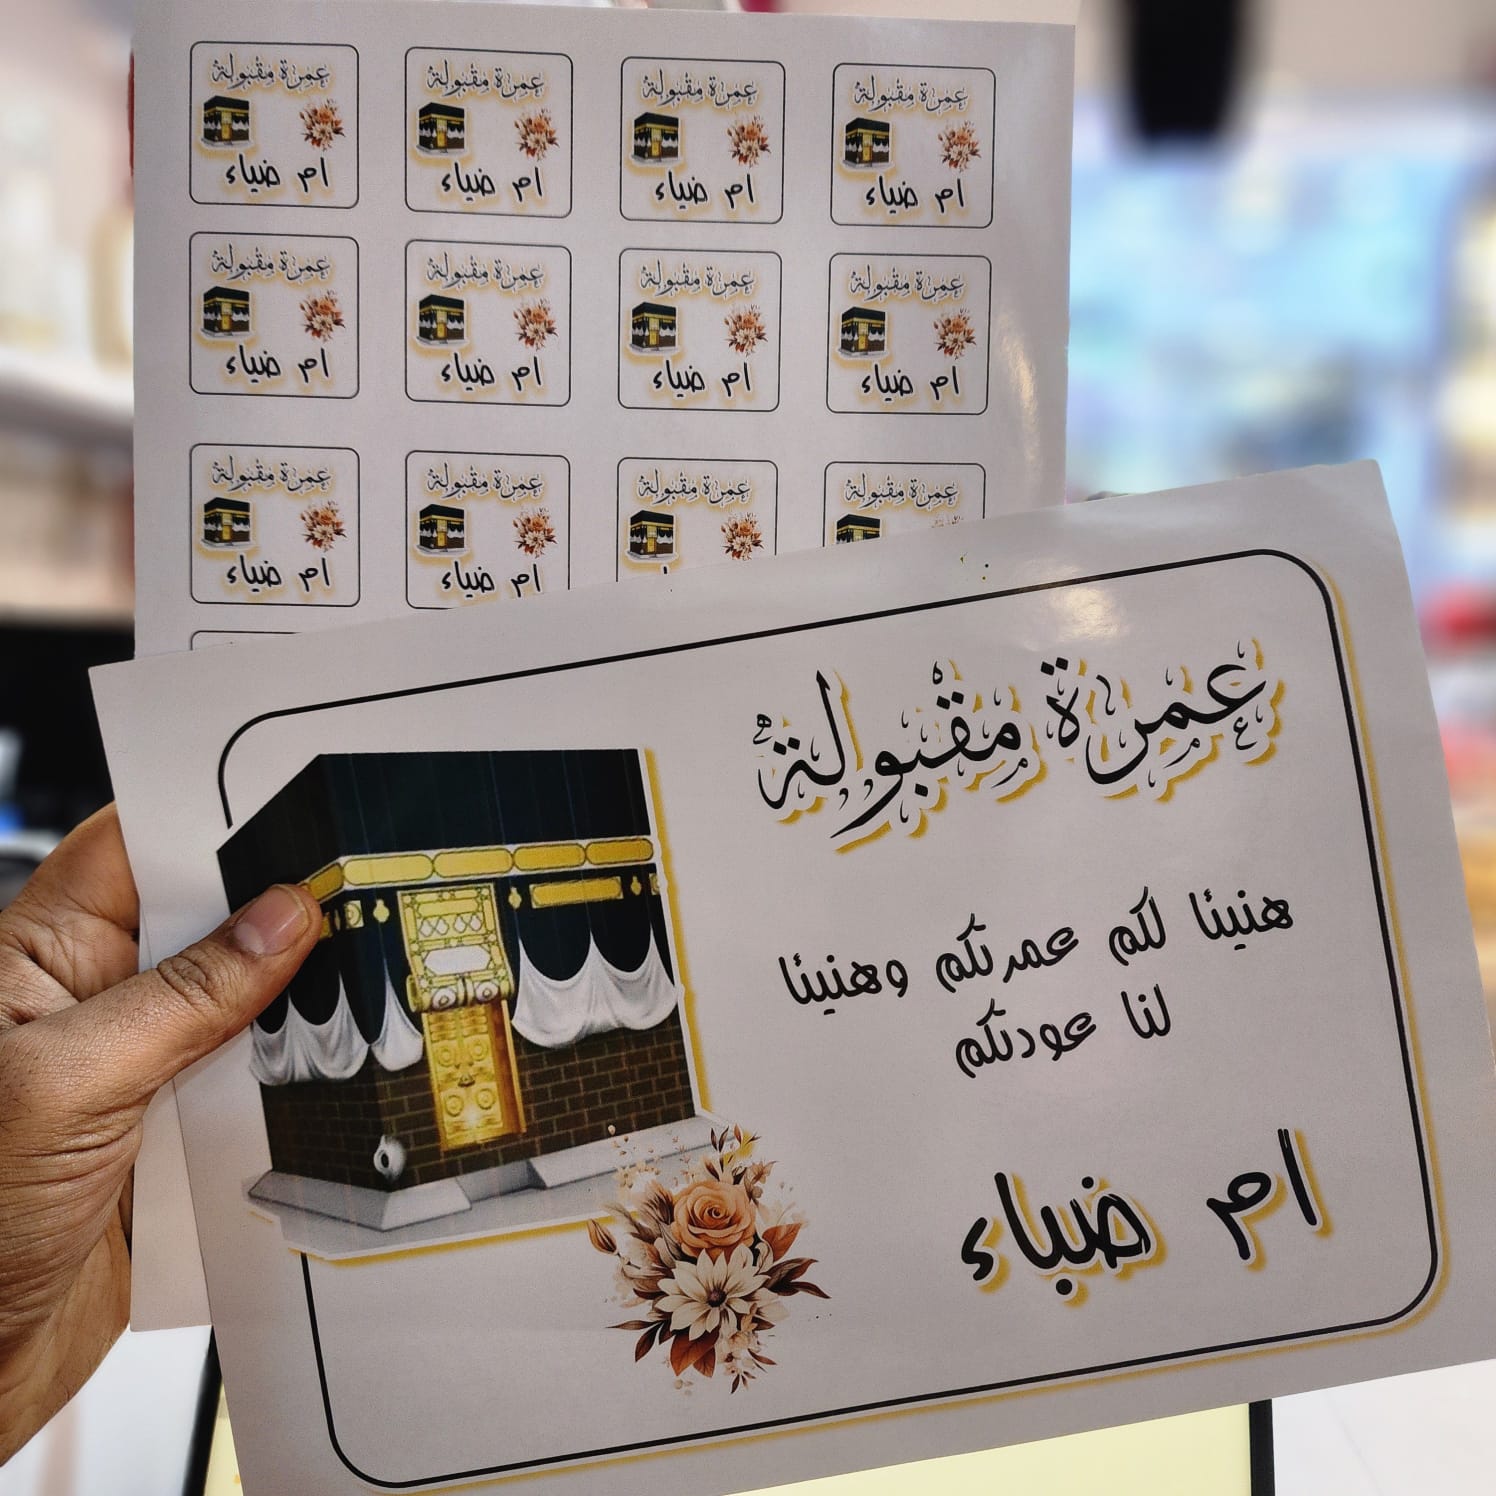 عمرة مقبولة
ام ضياء
عمرة مقبولة
ام ضياء
عمرة مقبولة
ام ضياء
عمرة مقبولة
ام ضياء
عمرة مقبولة
ام ضياء
عمرة مقبولة
ام ضياء
عمرة مقبولة
ام ضياء
عمرة مقبولة
ام ضياء
عمرة مقبولة
ام ضياء
عمرة مقبولة
ام ضياء
عمرة مقبولة
عمرة مقبولة
عمرة مقبولة
هنيئا لكم عمرتكم وهنيئا
لنا عودتكم
ام ضياء